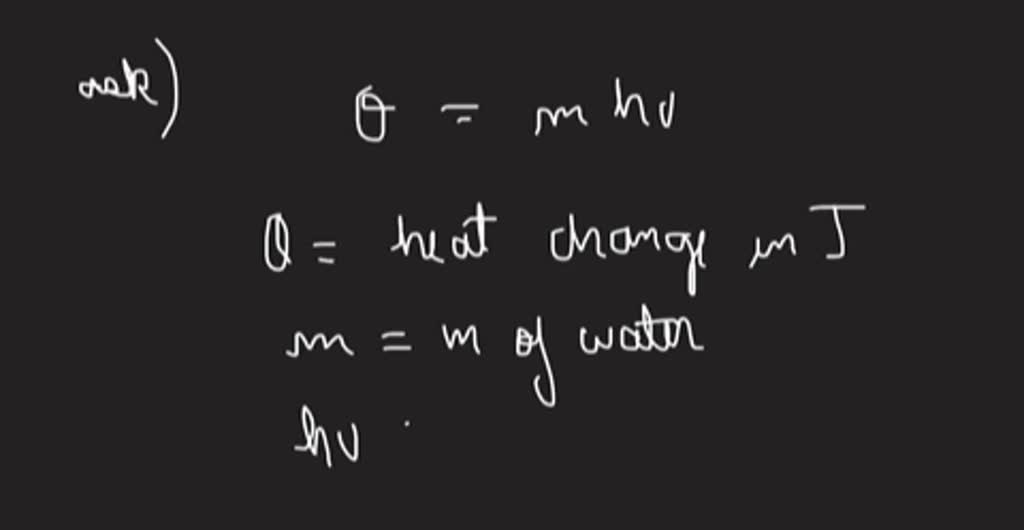 ask) Q = m hv
Q = heat change in J
m = m of water
hv